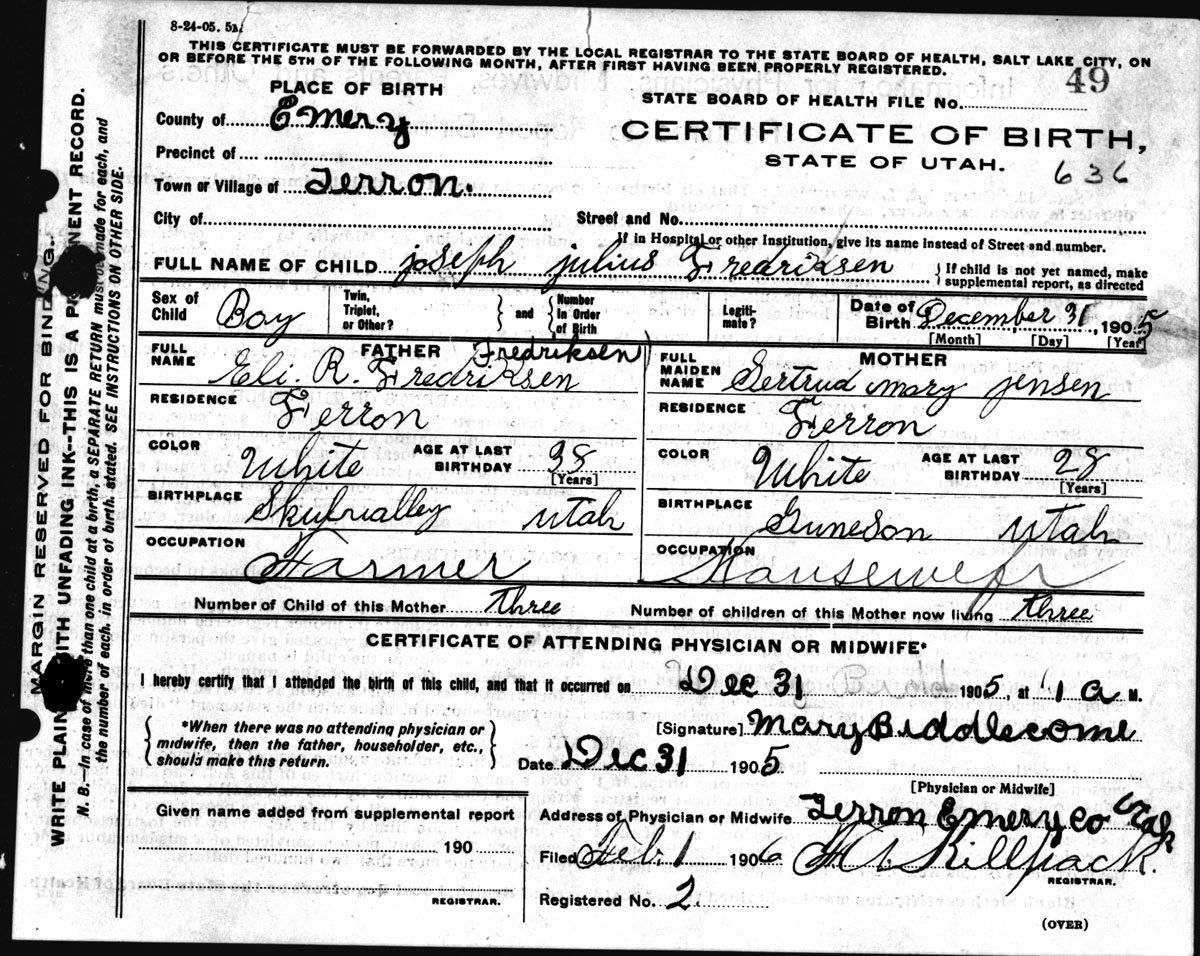 8-24-05. 5M.
THIS CERTIFICATE MUST BE FORWARDED BY THE LOCAL REGISTRAR TO THE STATE BOARD OF HEALTH, SALT LAKE CITY, ON
OR BEFORE THE 5TH OF THE FOLLOWING MONTH, AFTER FIRST HAVING BEEN PROPERLY REGISTERED.
49
PLACE OF BIRTH
STATE BOARD OF HEALTH FILE No.
County of Emery
CERTIFICATE OF BIRTH,
Precinct of
STATE OF UTAH.
636
Town or Village of Ferron.
City of
Street and No.
If in Hospital or other Institution, give its name instead of Street and number.
FULL NAME OF CHILD joseph julius Fredriksen
If child is not yet named, make
supplemental report, as directed
Sex of Child Boy
Twin, Triplet, or Other?
and
Number In Order of Birth
Legiti- mate?
Date of Birth December 31, 1905
[Month] [Day] [Year]
FATHER
FULL NAME Eli. R. Fredriksen
Fredriksen)
MOTHER
FULL MAIDEN NAME Gertrud mary jensen
RESIDENCE Ferron
RESIDENCE Ferron
COLOR White
AGE AT LAST BIRTHDAY 38
[Years]
COLOR White
AGE AT LAST BIRTHDAY 28
[Years]
BIRTHPLACE utah
BIRTHPLACE Guneson utah
OCCUPATION Farmer
OCCUPATION
Number of Child of this Mother three
Number of children of this Mother now living three
CERTIFICATE OF ATTENDING PHYSICIAN OR MIDWIFE*
I hereby certify that I attended the birth of this child, and that it occurred on Dec 31 1905, at 1 a M.
*When there was no attending physician or
midwife, then the father, householder, etc.,
should make this return.
[Signature] Mary Biddlecome
Date Dec 31 1905
[Physician or Midwife]
Given name added from supplemental report
190
REGISTRAR.
Address of Physician or Midwife Ferron Emery Co Utah
Filed Feb. 1 1906 Killpack.
REGISTRAR.
Registered No. 2
(OVER)
MARGIN RESERVED FOR BINDING.
WRITE PLAINLY WITH UNFADING INK—THIS IS A PERMANENT RECORD.
N. B.—In case of more than one child at a birth, a SEPARATE RETURN must be made for each, and
the number of each, in order of birth, stated. SEE INSTRUCTIONS ON OTHER SIDE.